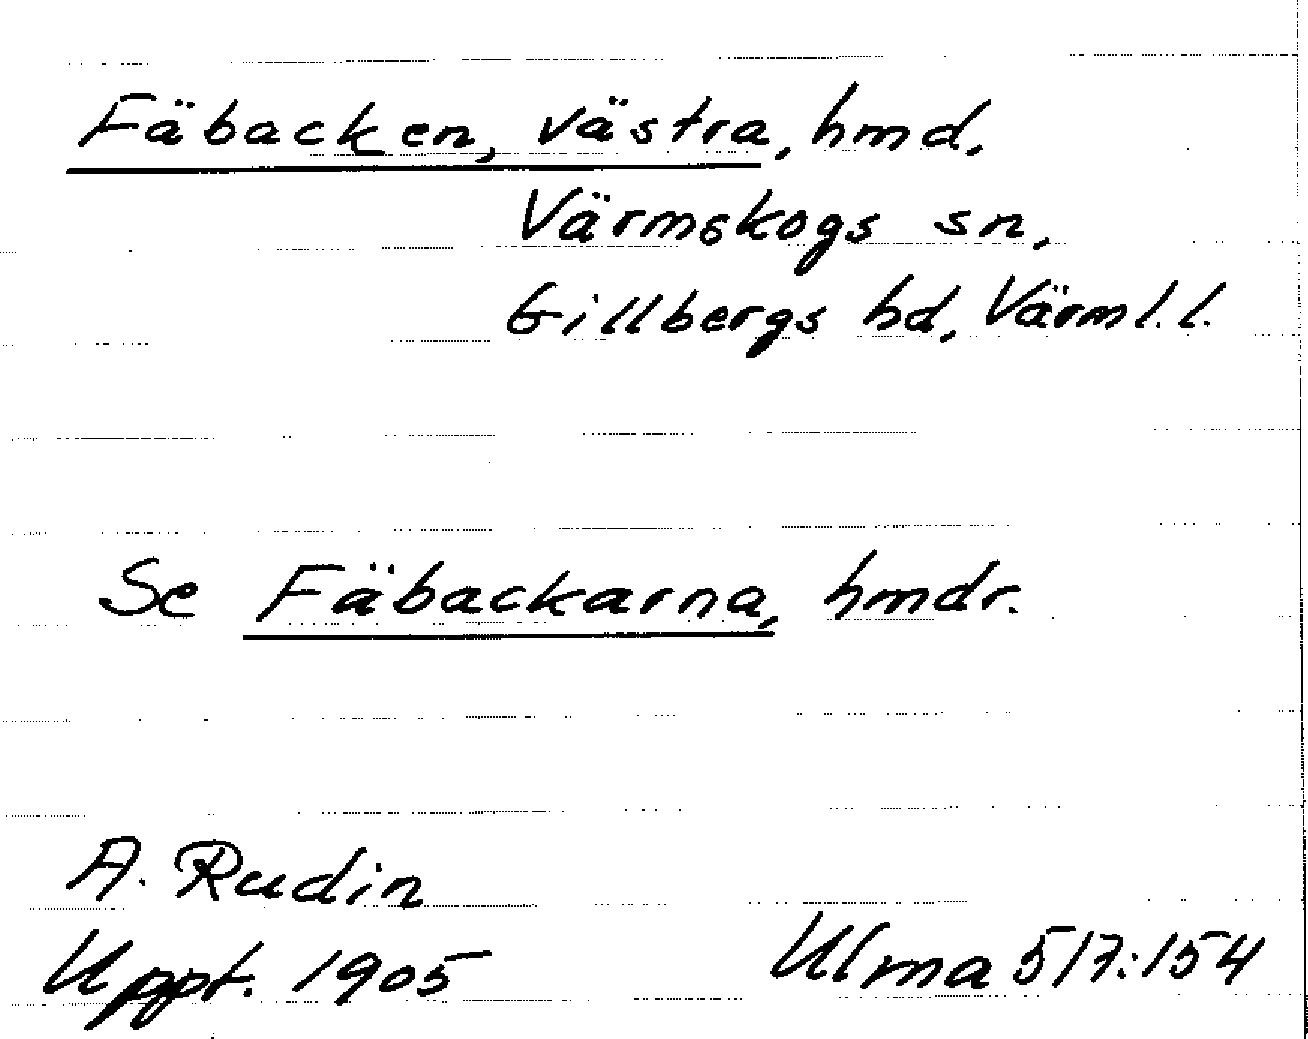 Fäbacken, västra, hmd,
Värmskogs sn,
Gillbergs hd, Värml. l.
Se Fäbackarna, hmdr.
A. Rudin
Uppt. 1905
Ulma 517:154